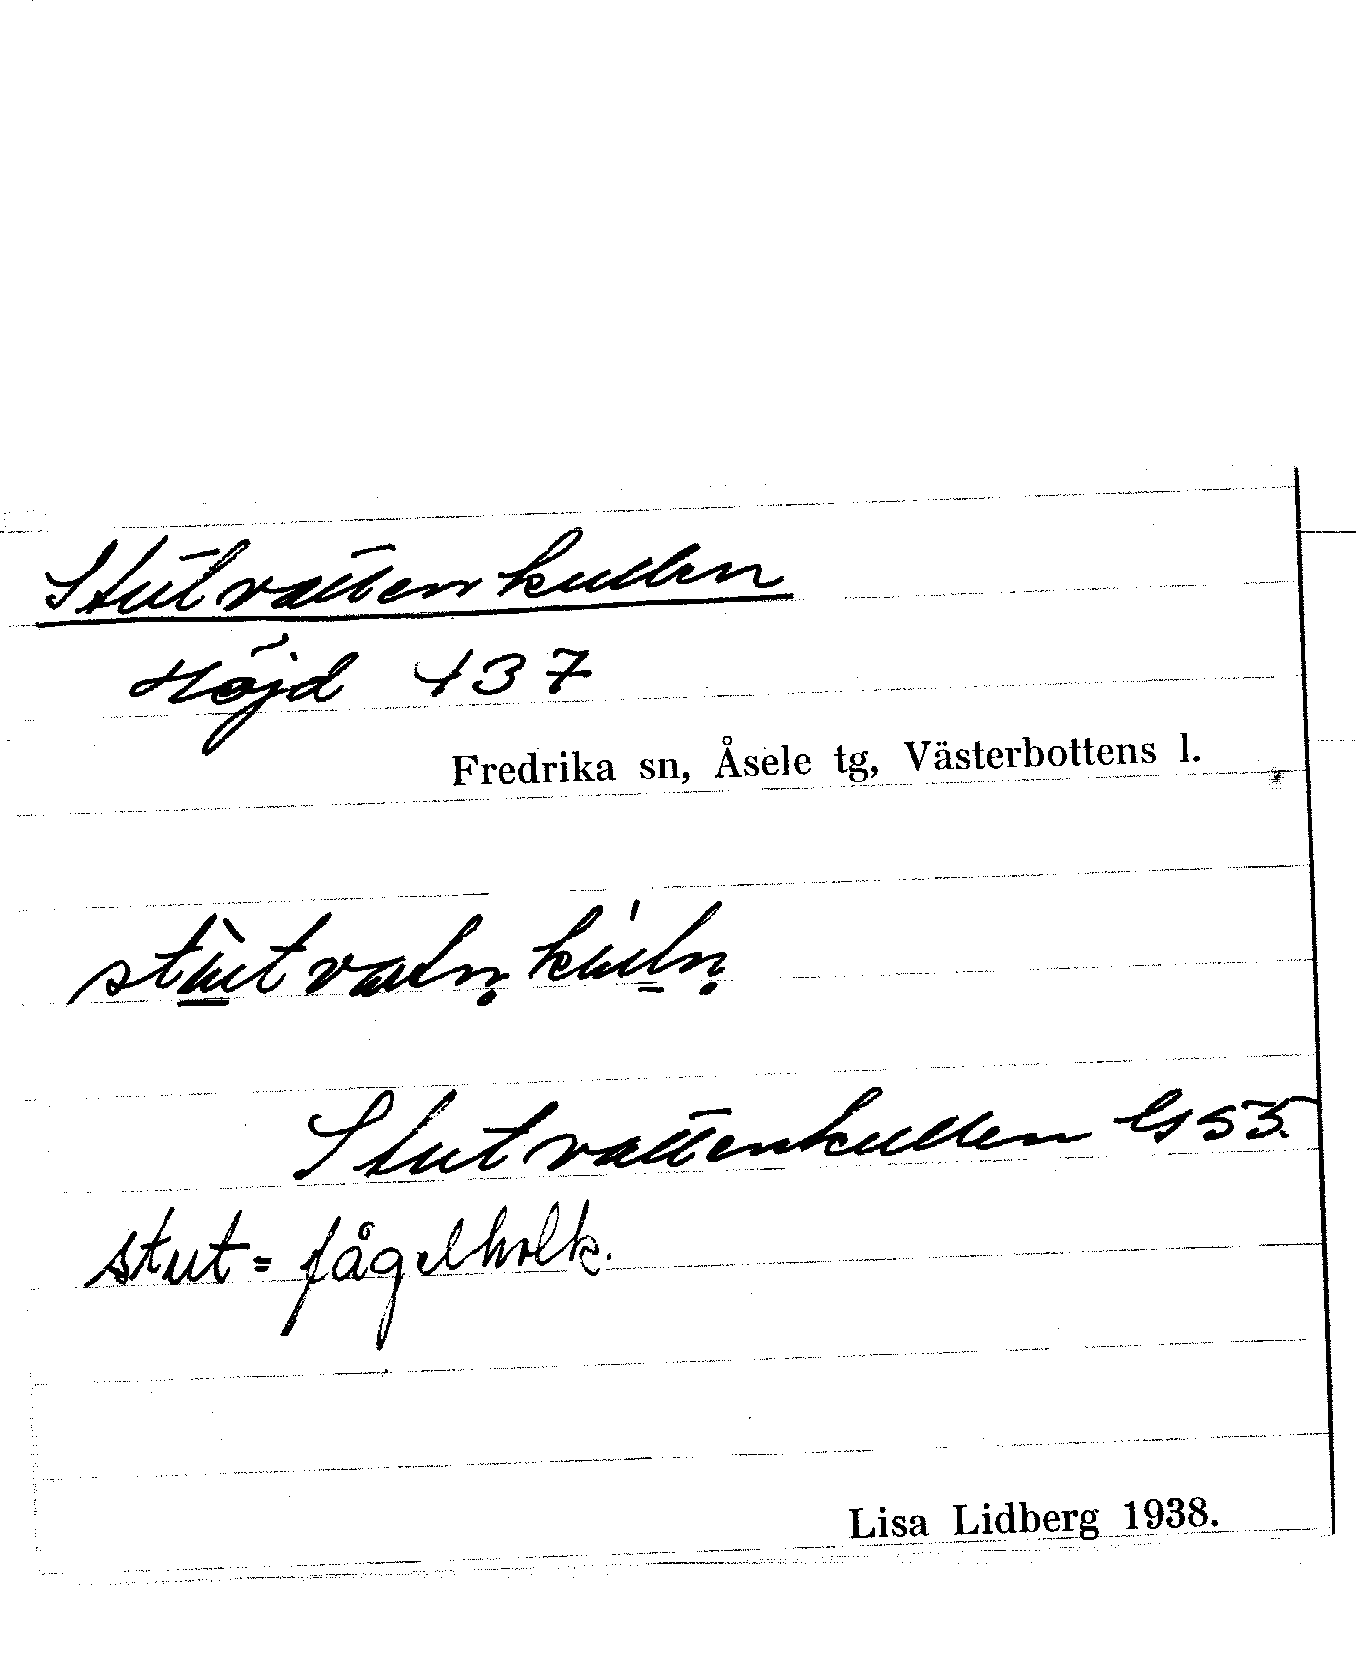 Stutvattenkullen
Höjd 437
Fredrika sn, Åsele tg, Västerbottens l.
stùtvatn̥ kúln̥
Stutvattenkullen Gs 55.
stut = fågelholk.
Lisa Lidberg 1938.